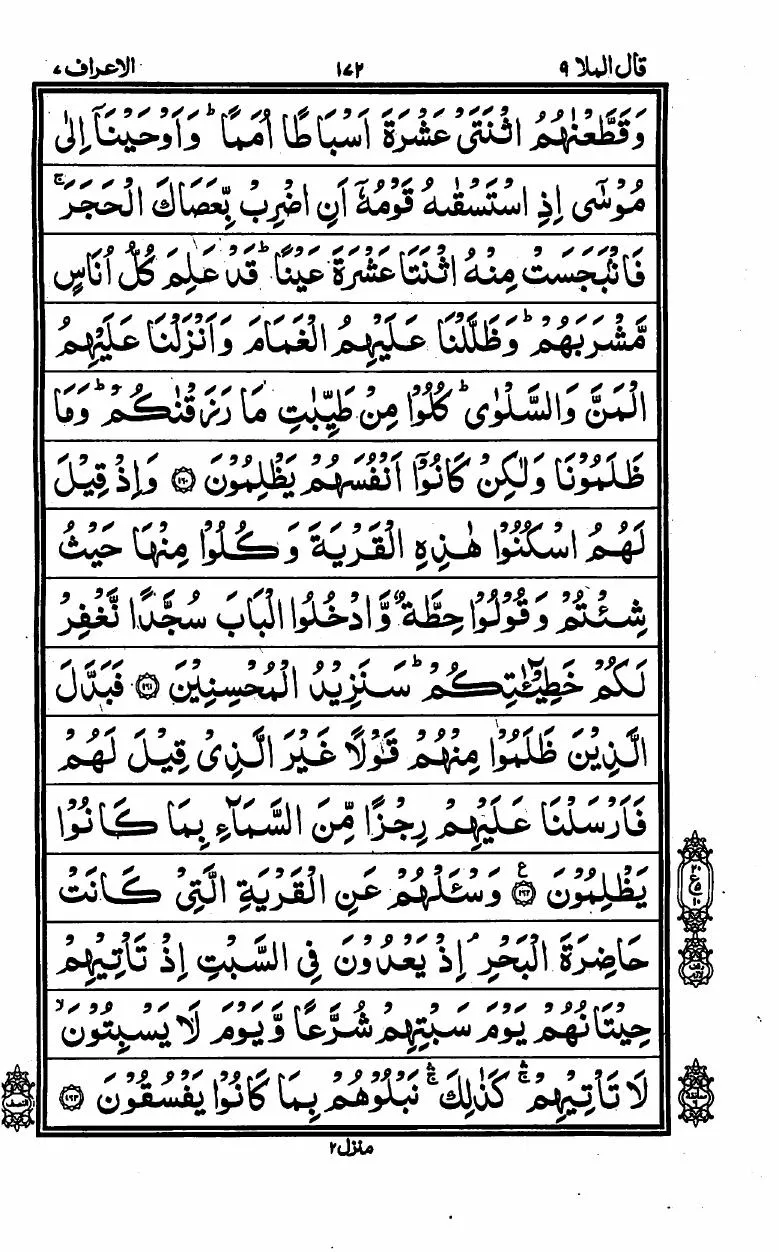 قال الملا ٩ ١٧٢ الاعراف ٧
وَقَطَّعْنٰهُمُ اثْنَتَىْ عَشْرَةَ اَسْبَاطًا اُمَمًا ؕ وَاَوْحَيْنَاۤ اِلٰى
مُوْسٰۤى اِذِ اسْتَسْقٰىهُ قَوْمُهٗۤ اَنِ اضْرِبْ بِّعَصَاكَ الْحَجَرَ ۚ
فَانْۢبَجَسَتْ مِنْهُ اثْنَتَا عَشْرَةَ عَيْنًا ؕ قَدْ عَلِمَ كُلُّ اُنَاسٍ
مَّشْرَبَهُمْ ؕ وَظَلَّلْنَا عَلَيْهِمُ الْغَمَامَ وَاَنْزَلْنَا عَلَيْهِمُ
الْمَنَّ وَالسَّلْوٰى ؕ كُلُوْا مِنْ طَيِّبٰتِ مَا رَزَقْنٰكُمْ ؕ وَمَا
ظَلَمُوْنَا وَلٰكِنْ كَانُوْۤا اَنْفُسَهُمْ يَظْلِمُوْنَ ۝١٦٠ وَاِذْ قِيْلَ
لَهُمُ اسْكُنُوْا هٰذِهِ الْقَرْيَةَ وَكُلُوْا مِنْهَا حَيْثُ
شِئْتُمْ وَقُوْلُوْا حِطَّةٌ وَّادْخُلُوا الْبَابَ سُجَّدًا نَّغْفِرْ
لَكُمْ خَطِيْٓـٰٔتِكُمْ ؕ سَنَزِيْدُ الْمُحْسِنِيْنَ ۝١٦١ فَبَدَّلَ
الَّذِيْنَ ظَلَمُوْا مِنْهُمْ قَوْلًا غَيْرَ الَّذِىْ قِيْلَ لَهُمْ
فَاَرْسَلْنَا عَلَيْهِمْ رِجْزًا مِّنَ السَّمَآءِ بِمَا كَانُوْا
يَظْلِمُوْنَ ۝١٦٢ ع وَسْـَٔلْهُمْ عَنِ الْقَرْيَةِ الَّتِىْ كَانَتْ
حَاضِرَةَ الْبَحْرِ ۘ اِذْ يَعْدُوْنَ فِى السَّبْتِ اِذْ تَاْتِيْهِمْ
حِيْتَانُهُمْ يَوْمَ سَبْتِهِمْ شُرَّعًا وَّيَوْمَ لَا يَسْبِتُوْنَ ۙ
لَا تَاْتِيْهِمْ ۛۚ كَذٰلِكَ ۛۚ نَبْلُوْهُمْ بِمَا كَانُوْا يَفْسُقُوْنَ ۝١٦٣
منزل ٢
٢٠
ع ٥
١٠
النصف